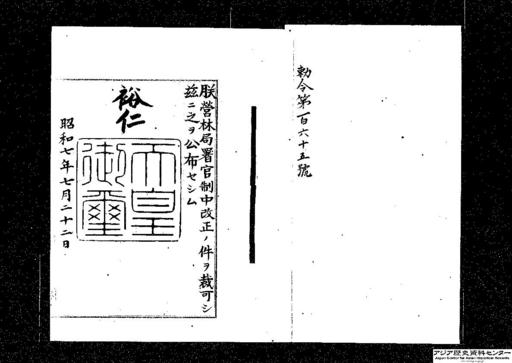 勅令第百六十五號
朕營林局署官制中改正ノ件ヲ裁可シ
茲ニ之ヲ公布セシム
裕仁
天皇
御璽
昭和七年七月二十二日
アジア歴史資料センター
Japan Center for Asian Historical Records